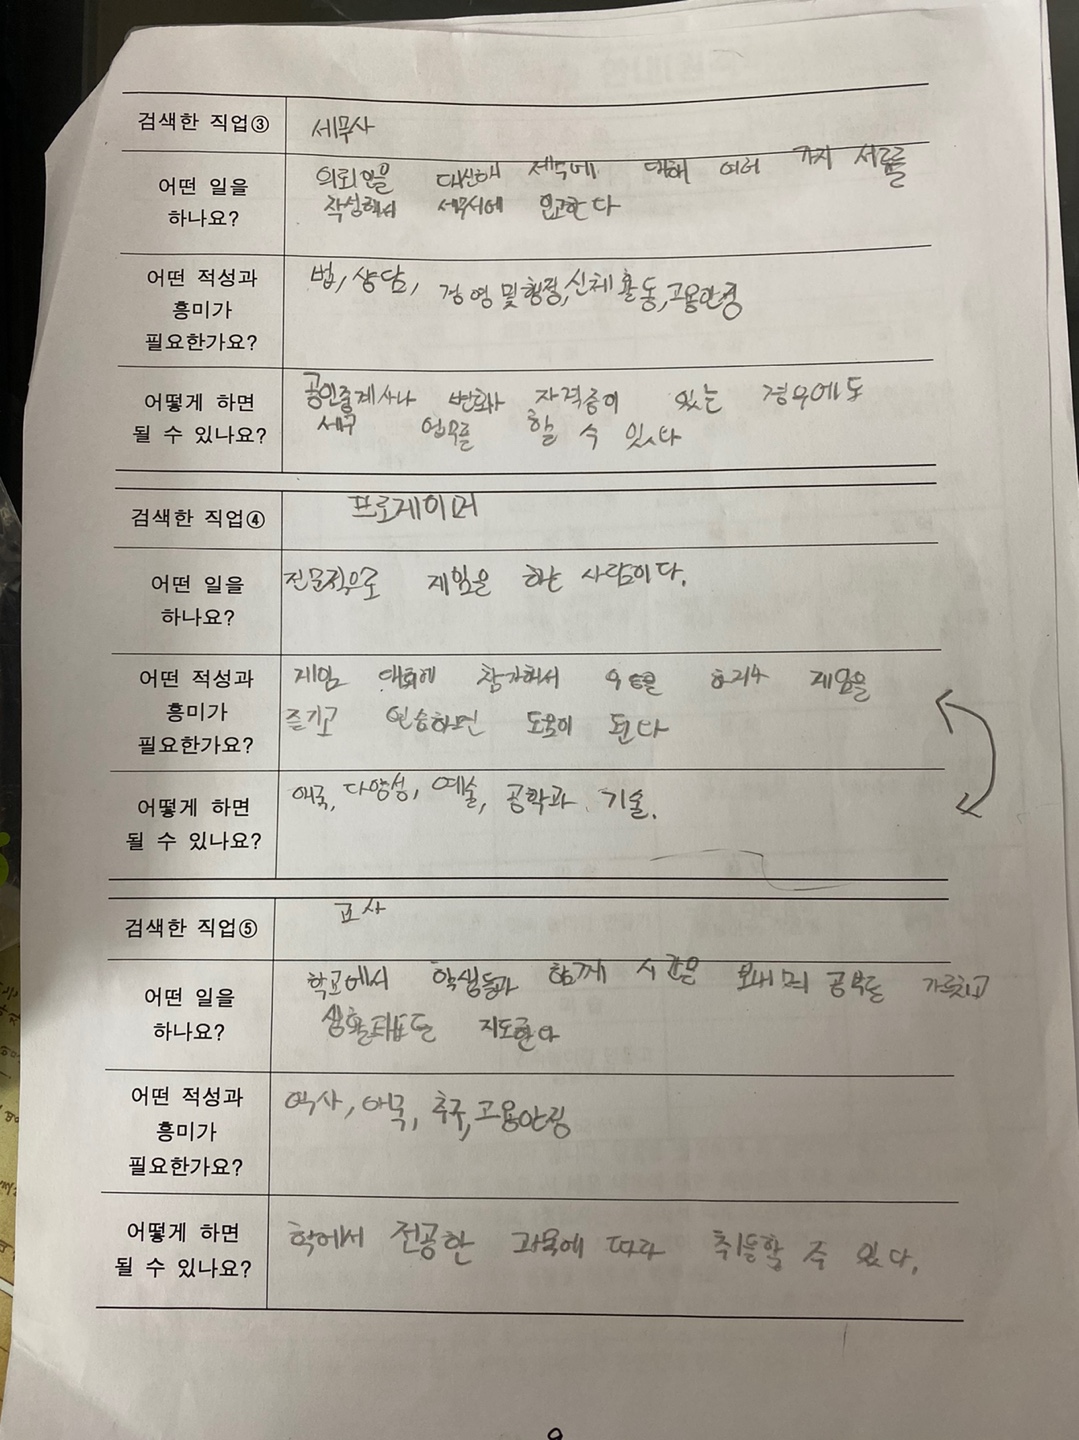 검색한 직업③
세무사
어떤 일을
하나요?
의뢰인을 대신해 세무에 대해 여러 가지 서류를
작성해서 세무서에 신고한다
어떤 적성과
흥미가
필요한가요?
법, 상담, 경영 및 행정, 신체활동, 고용안정
어떻게 하면
될 수 있나요?
공인중계사나 변호사 자격증이 있는 경우에도
업무를 할 수 있다
검색한 직업④
프로게이머
어떤 일을
하나요?
전문적으로 게임을 하는 사람이다.
어떤 적성과
흥미가
필요한가요?
게임 대회에 참가해서 게임을
즐기고 연습하면 도움이 된다
어떻게 하면
될 수 있나요?
애국, 다양성, 예술, 공학과 기술.
검색한 직업⑤
교사
어떤 일을
하나요?
학교에서 학생들과 함께 시간을 보내며 공부를 가르치고
생활태도를 지도한다
어떤 적성과
흥미가
필요한가요?
역사, 애국, 추구, 고용안정
어떻게 하면
될 수 있나요?
전공한 과목에 따라 취득할 수 있다.
9